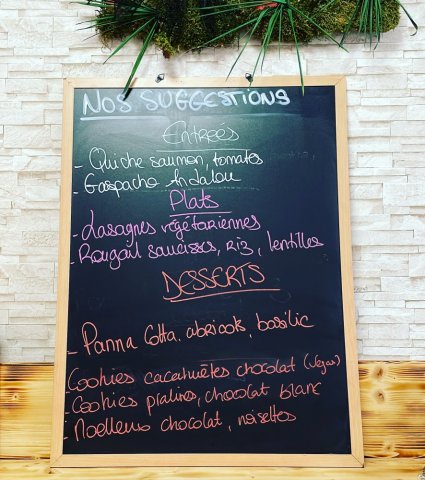 NOS SUGGESTIONS
Entrées
- Quiche saumon, tomates
- Gaspacho Andalou
Plats
- Lasagnes végétariennes
- Rougail saucisses, riz, lentilles
DESSERTS
- Panna Cotta, abricots, basilic
- Cookies cacahuètes chocolat (vegan)
- Cookies pralines, chocolat blanc
- Moelleux chocolat, noisettes